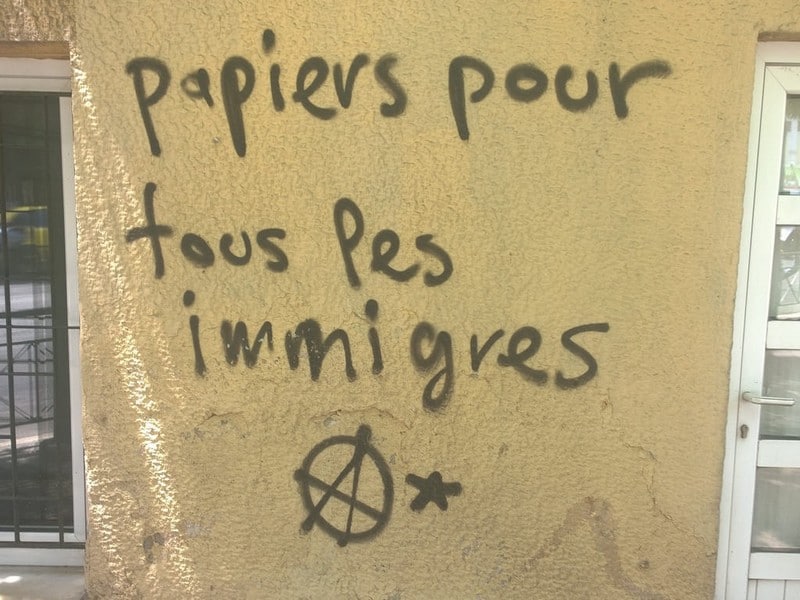 papiers pour
tous les
immigres